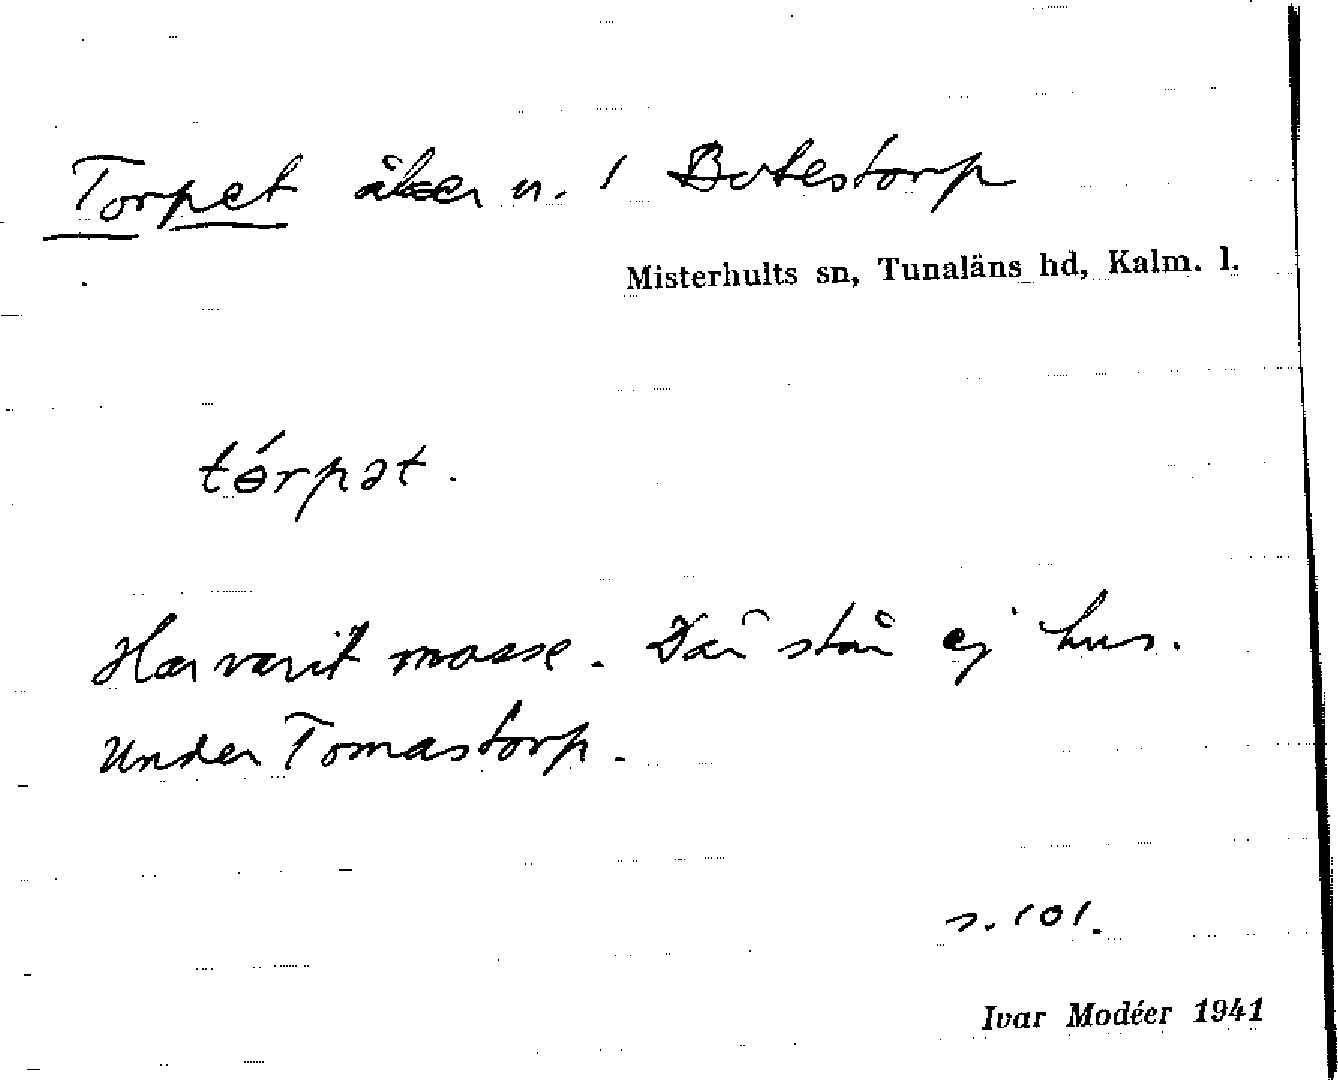 Torpet åker n. 1 Botestorp
Misterhults sn, Tunaläns hd, Kalm. l.
tórpət.
Har varit mosse. Där står ej hus.
Under Tomastorp.
s. 101.
Ivar Modéer 1941